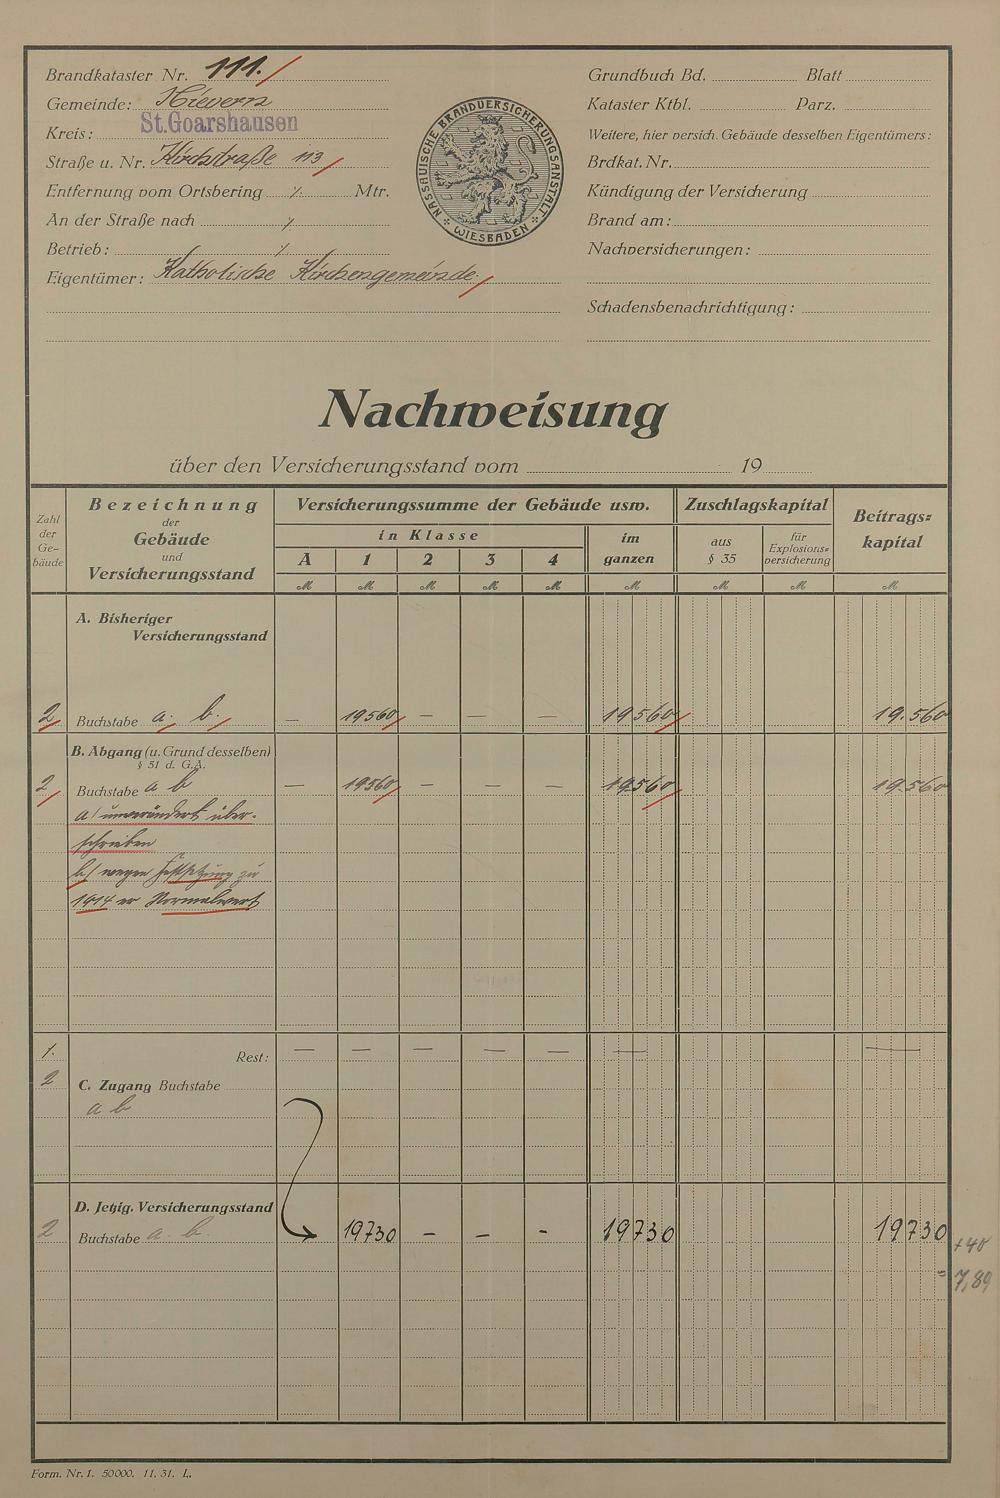 Brandkataster Nr. 111.
Gemeinde: Nievern
Kreis: St.Goarshausen
Straße u. Nr. Kirchstraße 113
Entfernung vom Ortsbering ⁒ Mtr.
An der Straße nach ⁒
Betrieb: ⁒
Eigentümer: Katholische Kirchengemeinde.
NASSAUISCHE BRANDVERSICHERUNGSANSTALT
WIESBADEN
Grundbuch Bd. Blatt
Kataster Ktbl. Parz.
Weitere, hier versich. Gebäude desselben Eigentümers:
Brdkat. Nr.
Kündigung der Versicherung
Brand am:
Nachversicherungen:
Schadensbenachrichtigung:
Nachweisung
über den Versicherungsstand vom 19
Zahl der Ge-bäude
Bezeichnung der Gebäude und Versicherungsstand
Versicherungssumme der Gebäude usw.
in Klasse
A 1 2 3 4
im ganzen
Zuschlagskapital
aus § 35
für Explosions-versicherung
Beitrags-kapital
M M M M M M M M M
A. Bisheriger
Versicherungsstand
2 Buchstabe a. b. — 19560 — — — 19560 19.560
B. Abgang (u. Grund desselben)
§ 31 d. G.A.
2 Buchstabe a b — 19560 — — — 19.560 19.560
a/ unverändert über-
schrieben
b/ wegen Festsetzung zu
1914 er Normalwert
1. Rest: — — — — — — —
2 C. Zugang Buchstabe
a b
D. Jetzig. Versicherungsstand
2 Buchstabe a. b. 19730 – – - 19730 19730
+40
= 7,89
Form. Nr. 1. 50000. 11. 31. L.